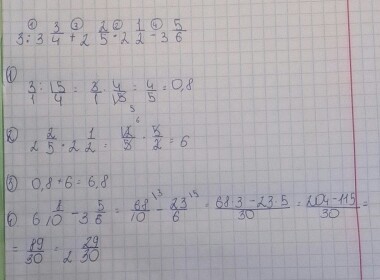 ① ③ ② ④
3 : 3 3/4 + 2 2/5 · 2 1/2 - 3 5/6
① 3/1 : 15/4 = 3/1 · 4/15 = 4/5 = 0,8
5 6
② 2 2/5 · 2 1/2 = 12/5 · 5/2 = 6
③ 0,8 + 6 = 6,8
④ 6 8/10 - 3 5/6 = 68/10 \3 - 23/6 \5 = 68·3-23·5/30 = 204-115/30 =
= 89/30 = 2 29/30